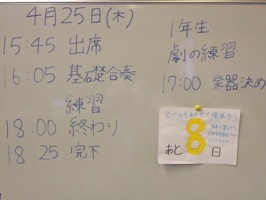 4月25日(木)
15:45 出席
16:05 基礎合奏
練習
18:00 終わり
18:25 完下
1年生
劇の練習
17:00 楽器決め
あと8日